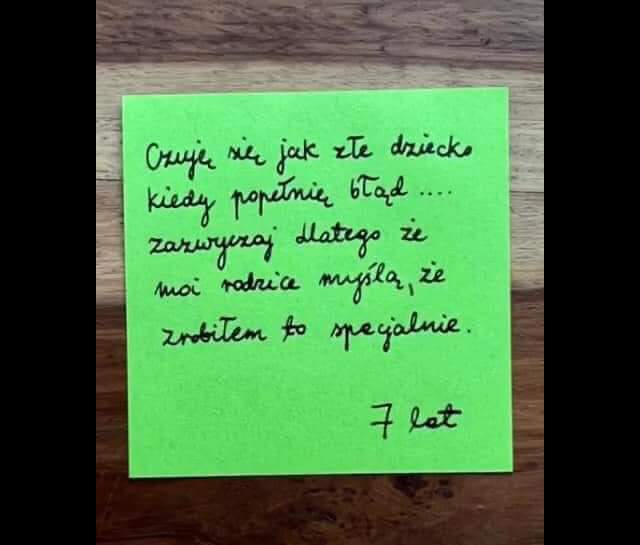 Czuję się jak złe dziecko
kiedy popełnię błąd ....
zazwyczaj dlatego że
moi rodzice myślą, że
zrobiłem to specjalnie.
7 lat